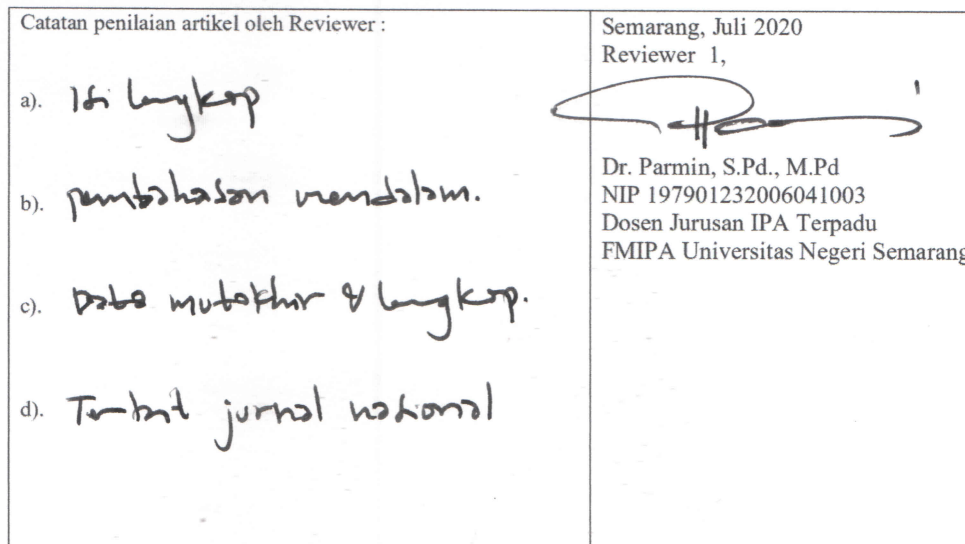 Catatan penilaian artikel oleh Reviewer :
a). Isi lengkap
b). pembahasan mendalam.
c). Data mutakhir & lengkap.
d). Terbit jurnal nasional
Semarang, Juli 2020
Reviewer 1,
Dr. Parmin, S.Pd., M.Pd
NIP 197901232006041003
Dosen Jurusan IPA Terpadu
FMIPA Universitas Negeri Semarang